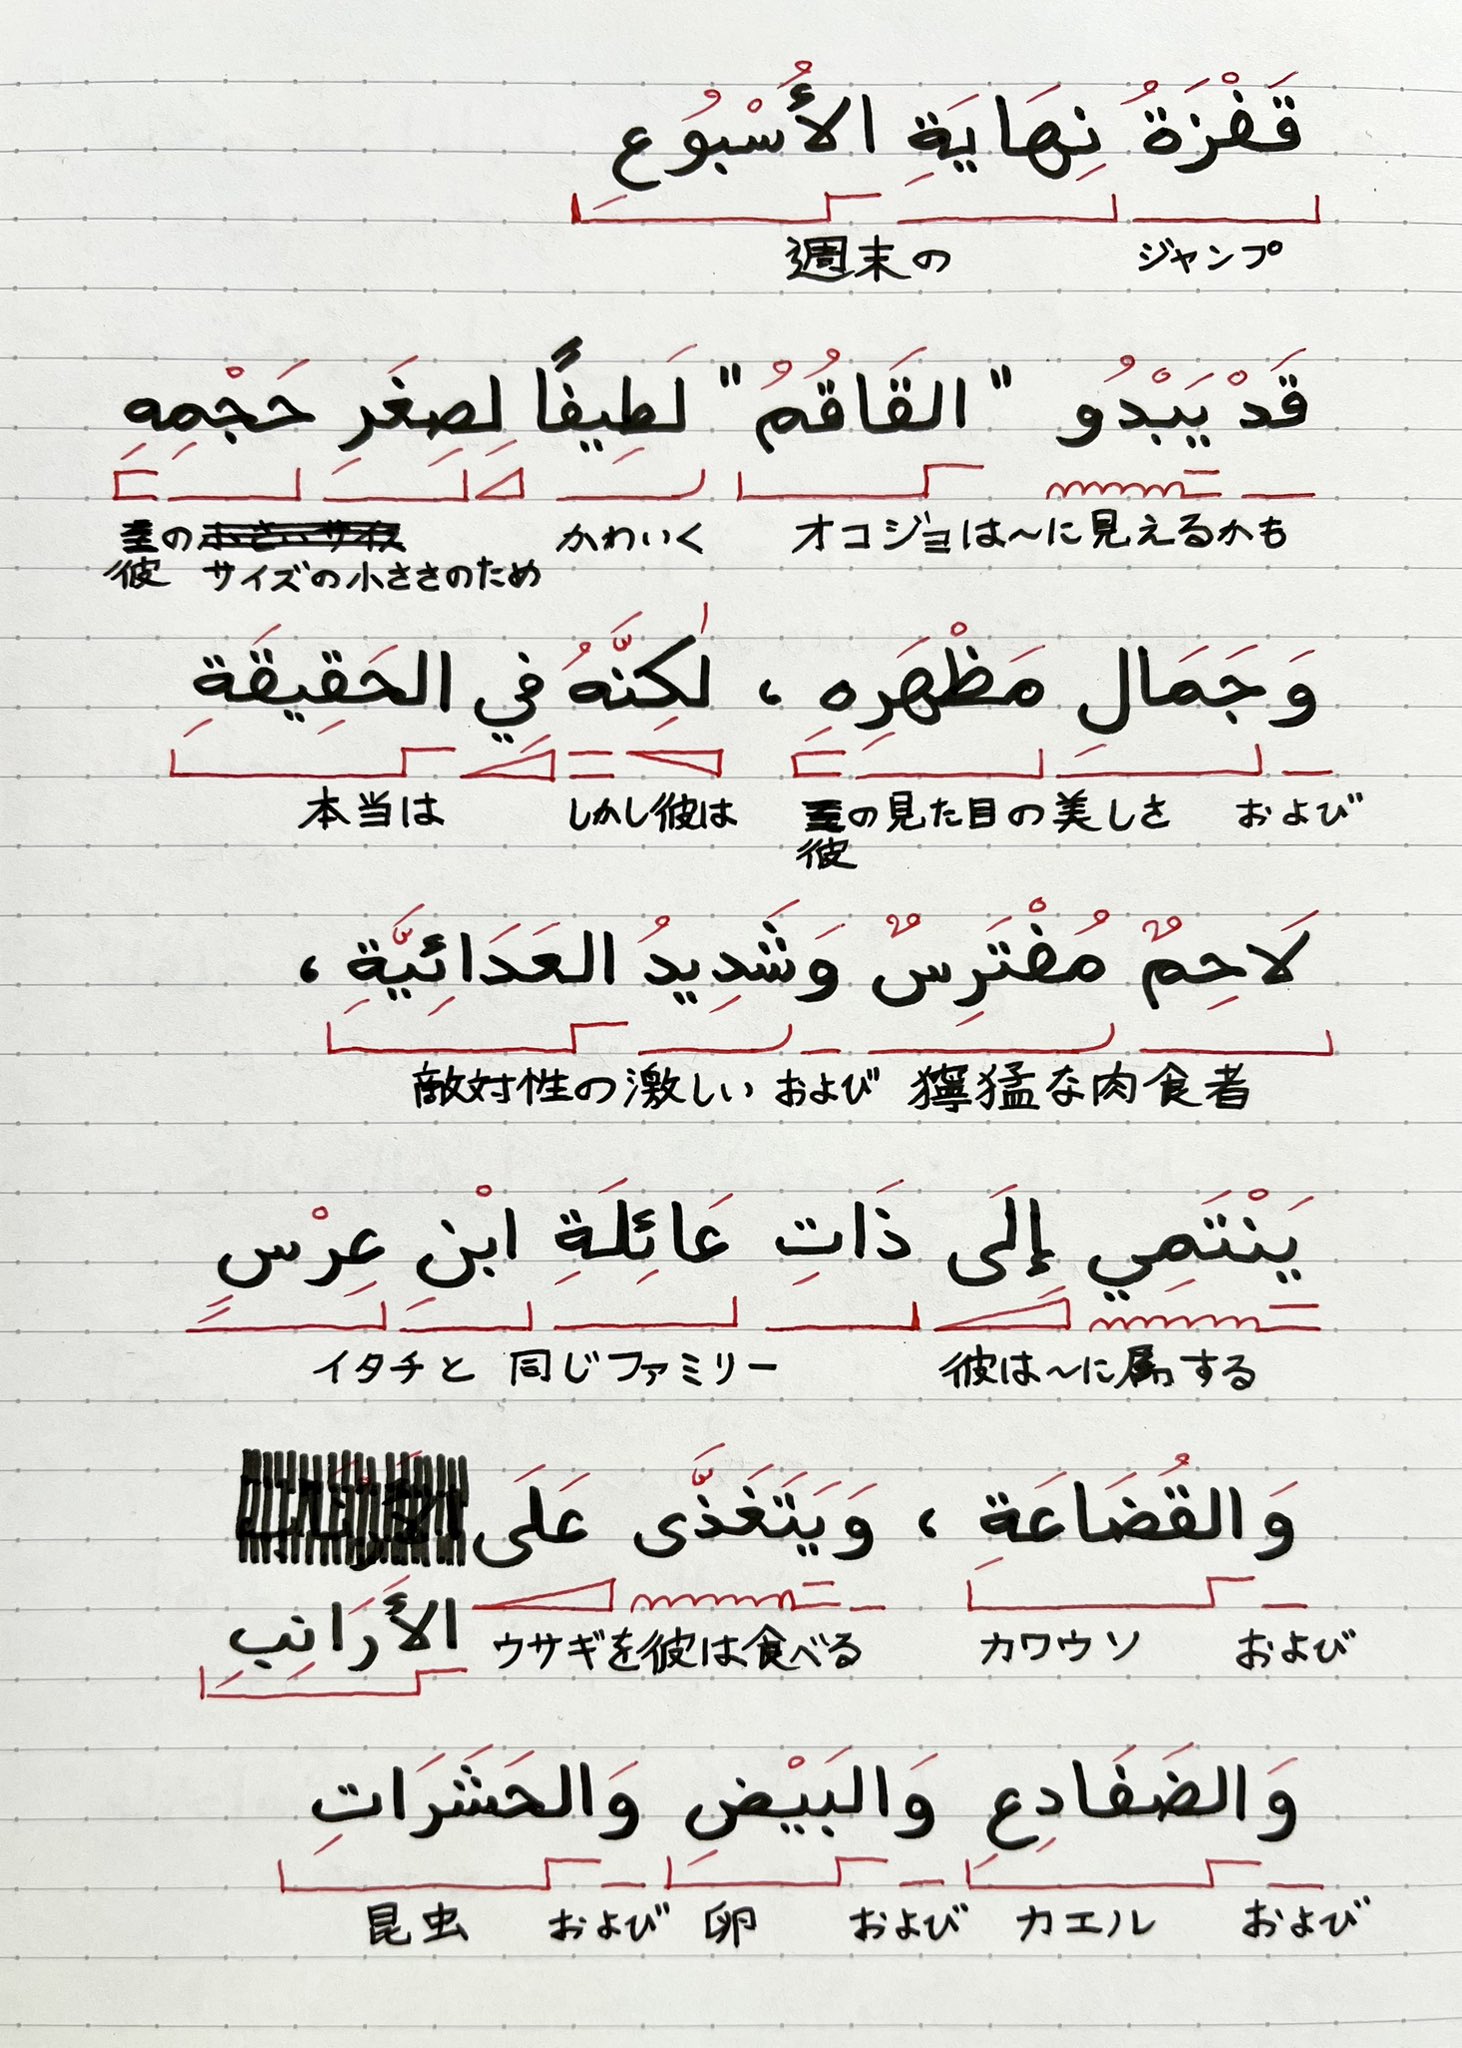 قَفْزَةُ نِهَايَةِ الأُسْبُوعِ
週末の ジャンプ
قَدْ يَبْدُو "القَاقُمُ" لَطِيفًا لِصِغَرِ حَجْمِهِ
の かわいく オコジョは〜に見えるかも
彼 サイズの小ささのため
وَجَمَالِ مَظْهَرِهِ ، لٰكِنَّهُ فِي الحَقِيقَةِ
本当は しかし彼は の見た目の美しさ および
彼
لَاحِمٌ مُفْتَرِسٌ وَشَدِيدُ العَدَائِيَّةِ ،
敵対性の激しい および 獰猛な肉食者
يَنْتَمِي إِلَى ذَاتِ عَائِلَةِ ابْنِ عِرْسٍ
イタチと 同じファミリー 彼は〜に属する
وَالقُضَاعَةِ ، وَيَتَغَذَّى عَلَى
الأَرَانِبِ ウサギを彼は食べる カワウソ および
وَالضَفَادِعِ وَالبَيْضِ وَالحَشَرَاتِ
昆虫 および 卵 および カエル および